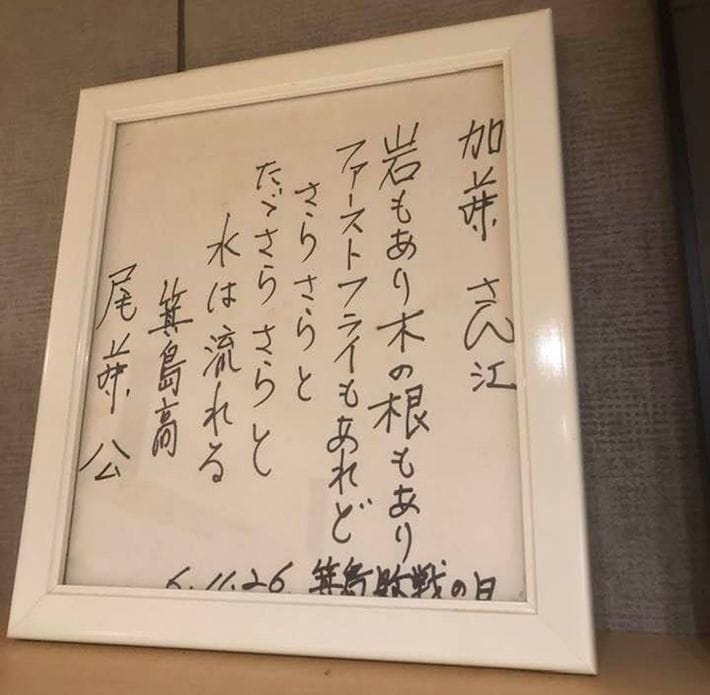 加藤さん江
岩もあり木の根もあり
ファーストフライもあれど
さらさらと
たゞさらさらと
水は流れる
箕島高
尾藤公
6.11.26. 箕島敗戦の日